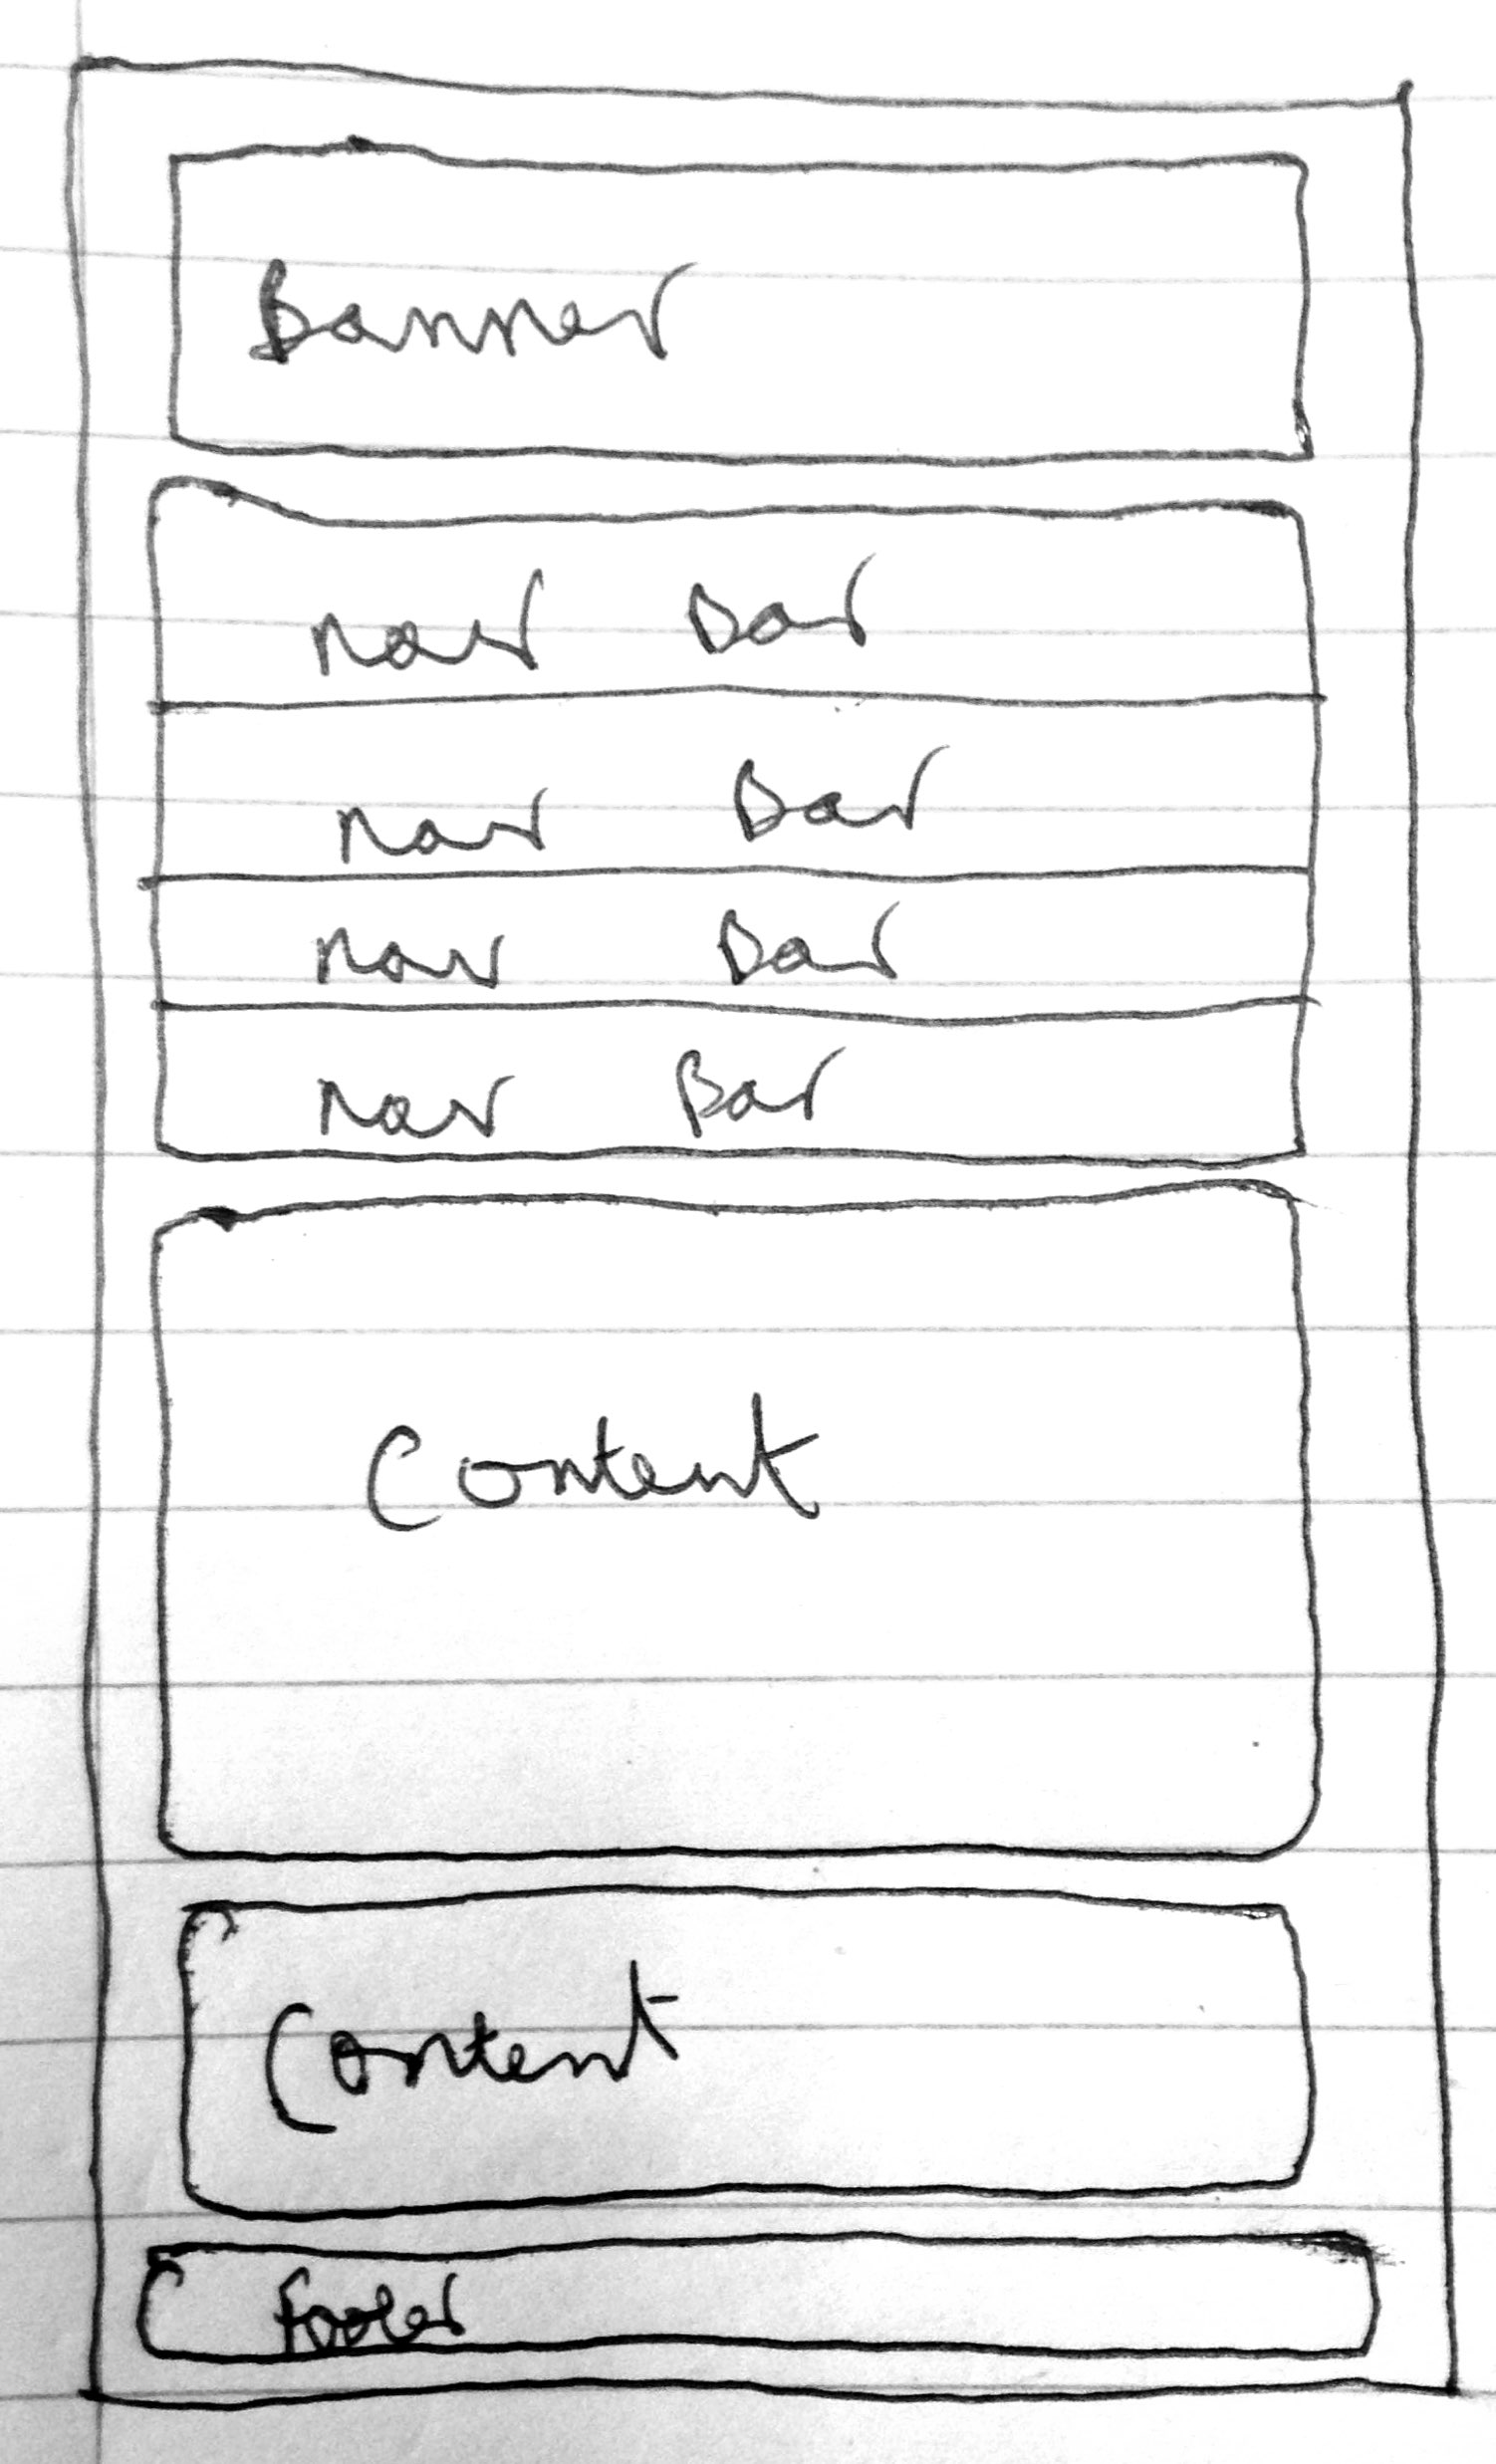 Banner
nav Bar
nav Bar
nav Bar
nav Bar
Content
Content
footer